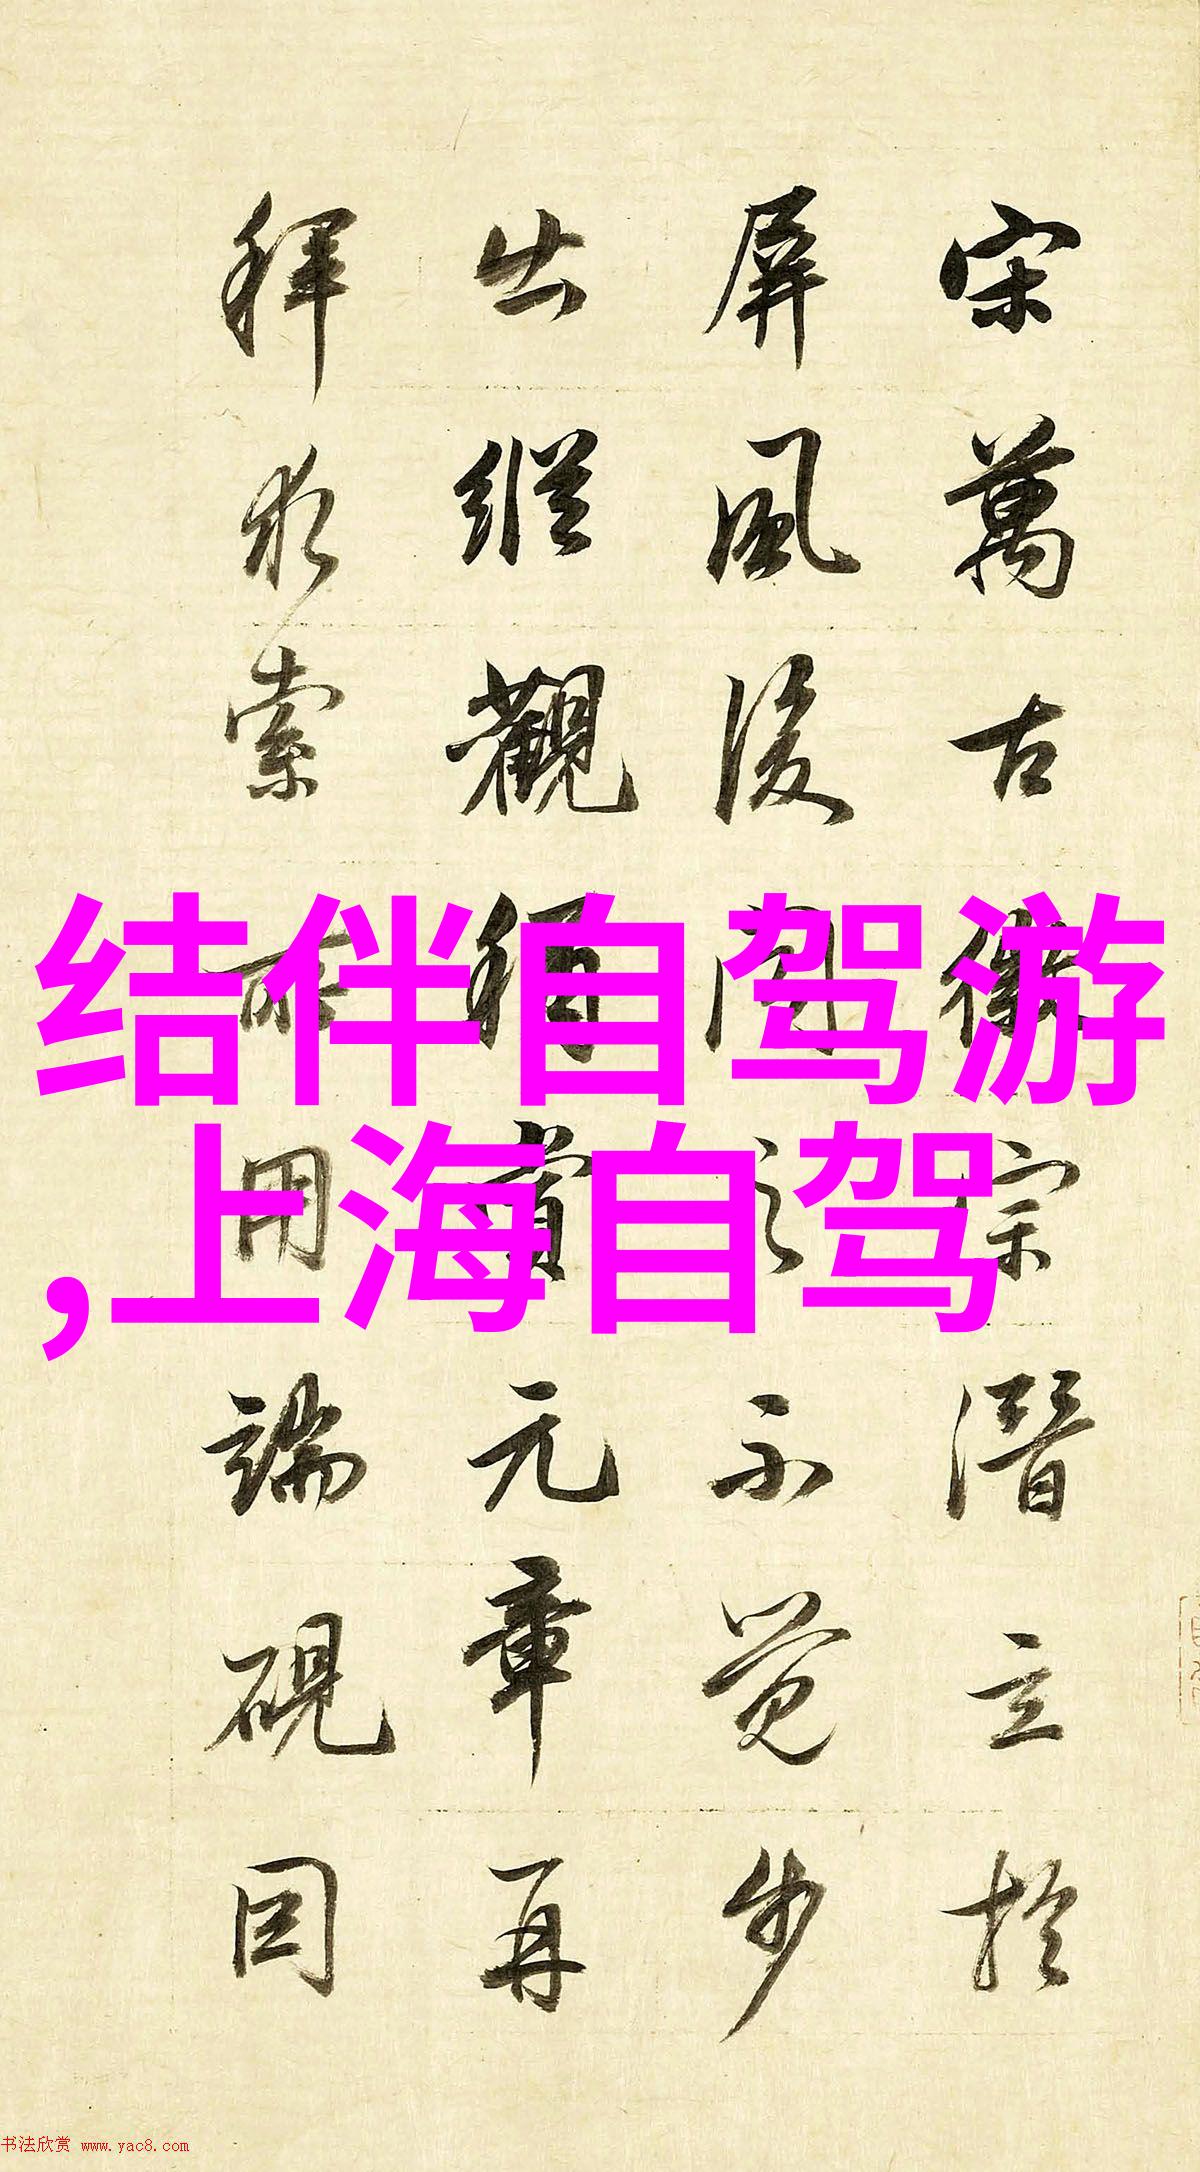 宋萬古徽宗潛立於
屏風後聞之不覺步
出縱觀稱賞元章再
拜求索所用端硯因
结伴自驾游
,上海自驾
书法欣赏 www.yac8.com